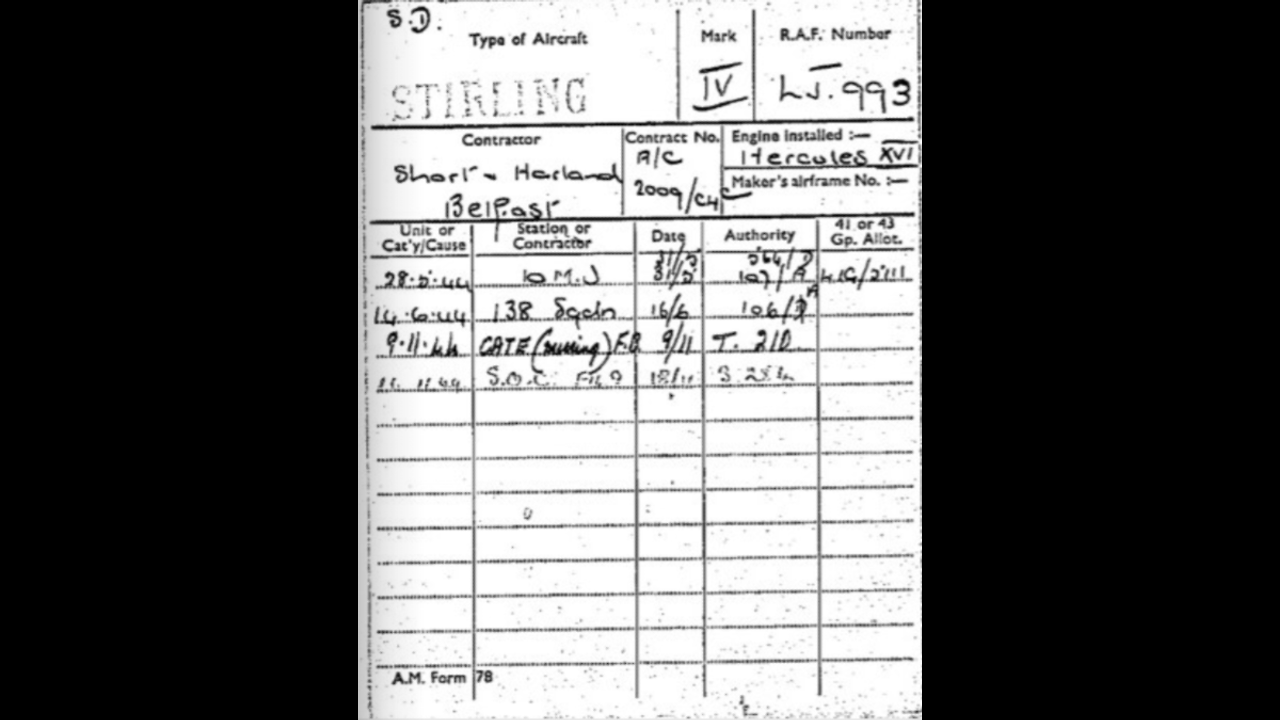 S.D.
Type of Aircraft Mark R.A.F. Number
STIRLING IV LJ.993
Contractor Contract No. Engine installed :—
Short & Harland A/C Hercules XVI
Belfast 2009/C4C Maker's airframe No. :—
Unit or Cat'y/Cause Station or Contractor Date Authority 41 or 43 Gp. Allot.
28.5.44 10 M.U 31/5 107/A 41G/
14.6.44 138 Sqdn 16/6 106/
9.11.44 CAT E (missing) F.B. 9/11 T. 210
S.O.C. 18/11
A.M. Form 78